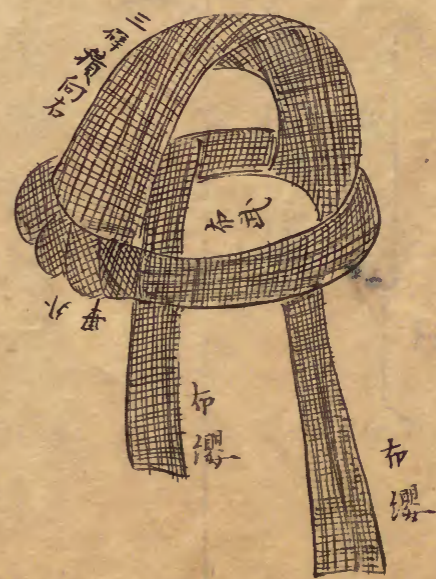 三辟積向右
布武
畢外
布纓
布纓